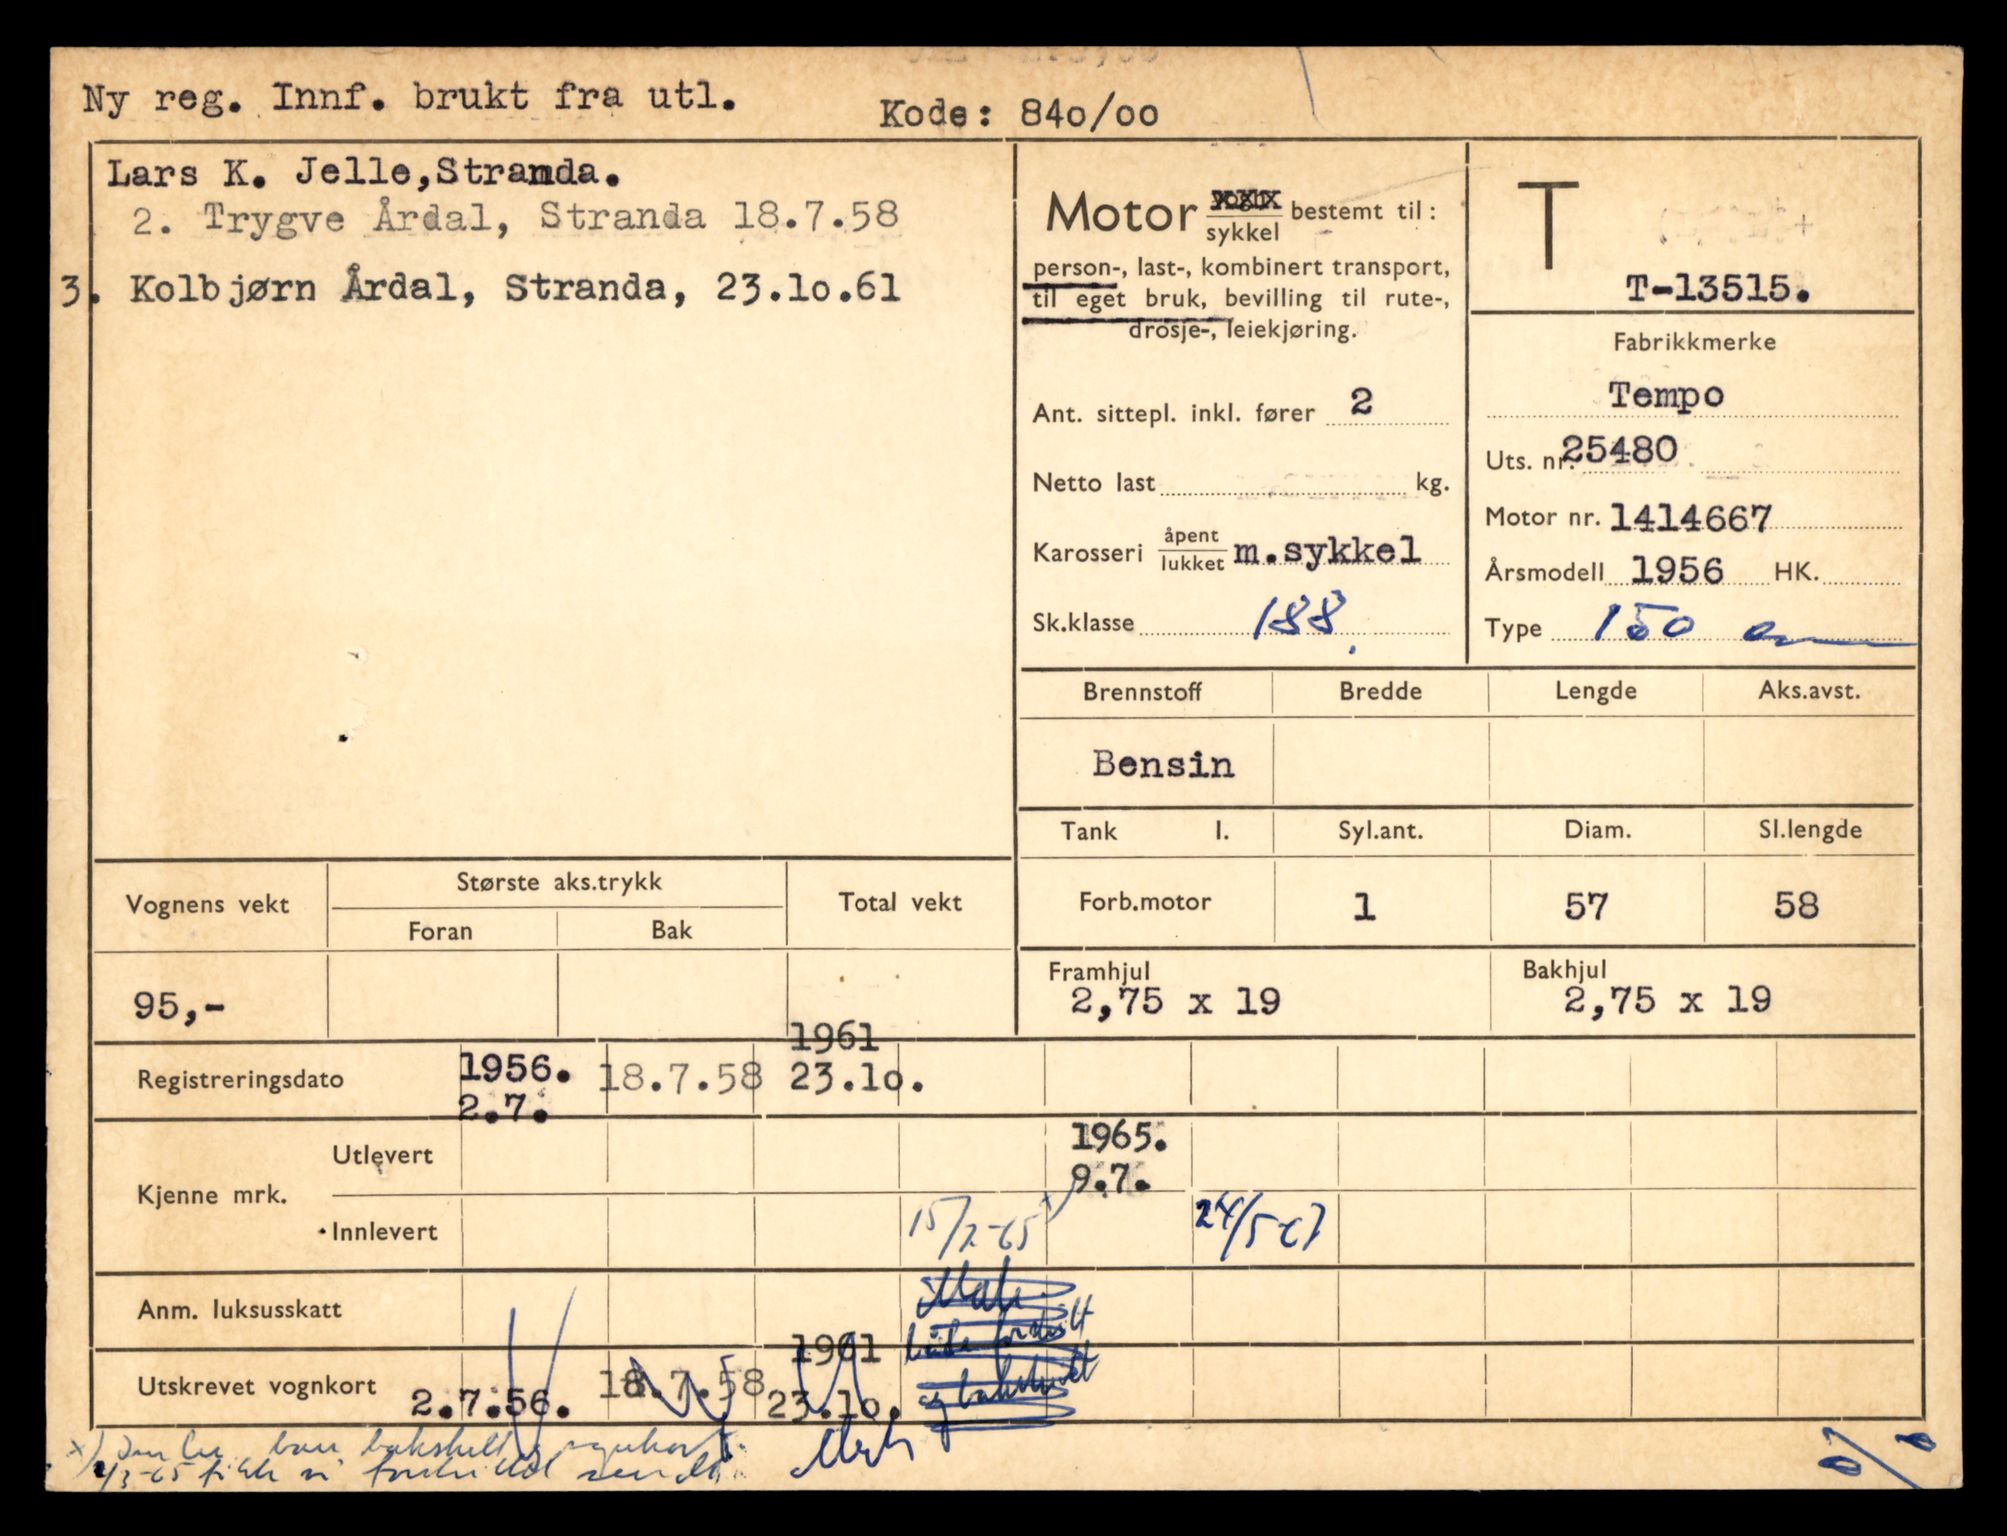 Ny reg. Innf. brukt fra utl.
Kode: 84o/oo
Lars K. Jelle,Stranda.
2. Trygve Årdal, Stranda 18.7.58
3. Kolbjørn Årdal, Stranda, 23.1o.61
Motor vogn sykkel bestemt til:
person-, last-, kombinert transport,
til eget bruk, bevilling til rute-,
drosje-, leiekjøring.
Ant. sittepl. inkl. fører 2
Netto last kg.
Karosseri åpent lukket m.sykkel
Sk.klasse 188.
T
T-13515.
Fabrikkmerke
Tempo
Uts. nr. 25480
Motor nr. 1414667
Årsmodell 1956 HK.
Type 150
Brennstoff Bredde Lengde Aks.avst.
Bensin
Tank l. Syl.ant. Diam. Sl.lengde
Forb.motor 1 57 58
Framhjul Bakhjul
2,75 x 19 2,75 x 19
Vognens vekt Største aks.trykk Total vekt
Foran Bak
95,-
Registreringsdato 1956. 2.7. 18.7.58 1961 23.1o.
Kjenne mrk.
Utlevert 1965. 9.7.
Innlevert 15/2-65 x) 24/5-67
Anm. luksusskatt
Utskrevet vognkort 2.7.56. 18.7.58 1961 23.1o.
x)